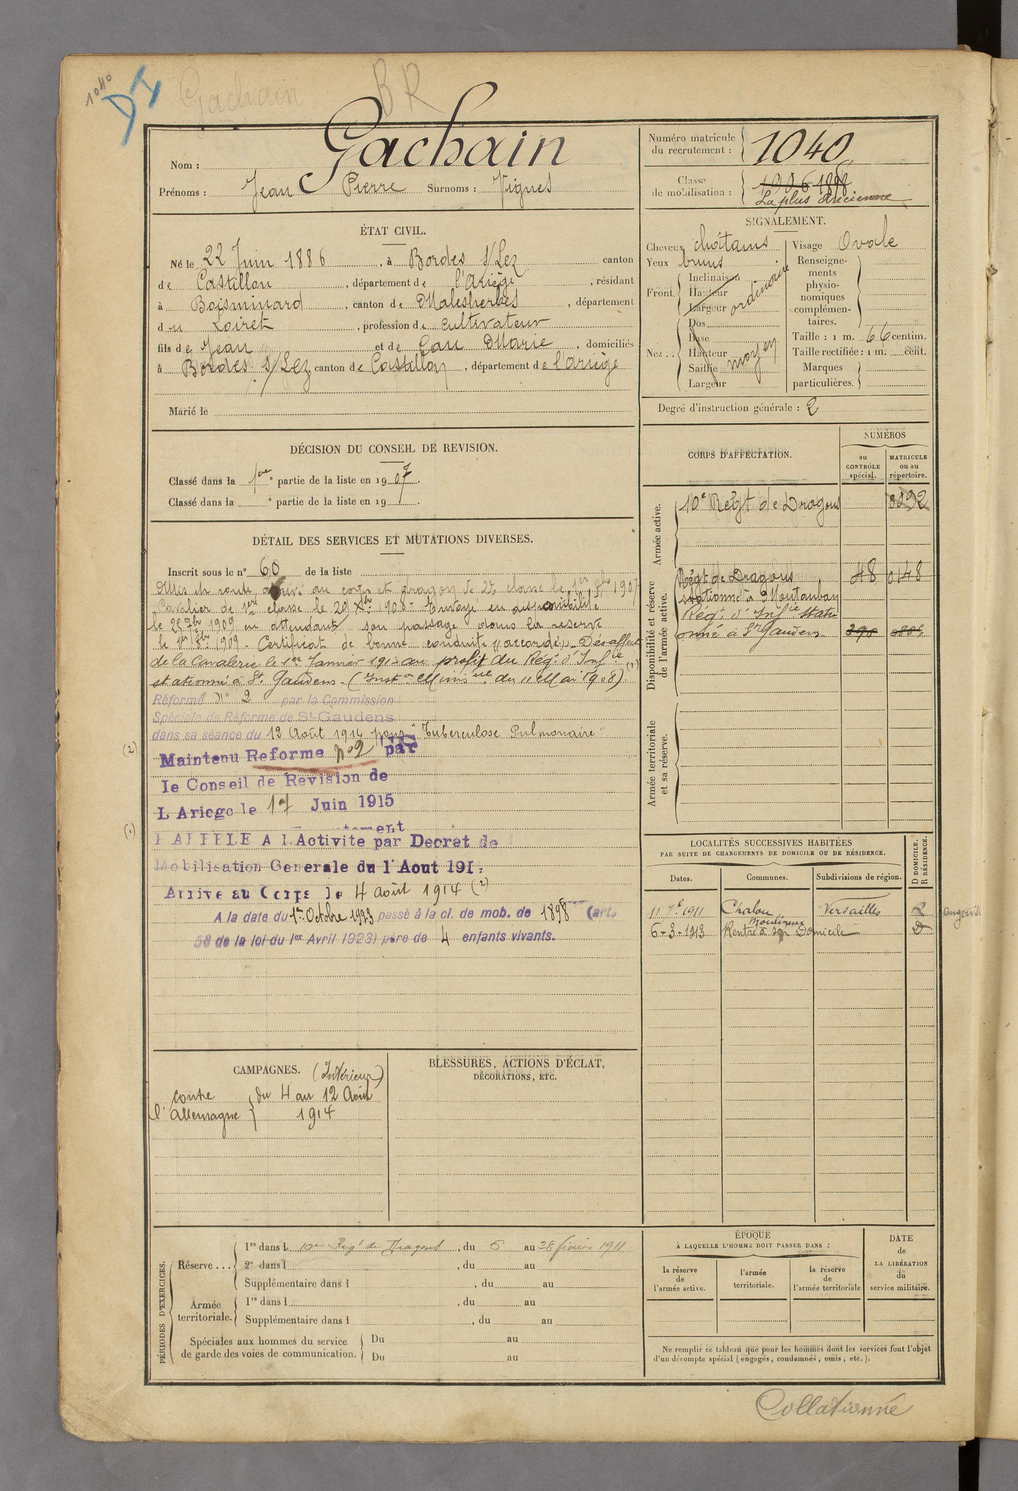 1040
Gachain
BR
Nom : Gachain
Prénoms : Jean Pierre Surnoms : Vignes
Numéro matricule du recrutement : 1040
Classe de mobilisation : 1906 1898
La plus ancienne
ÉTAT CIVIL.
Né le 22 Juin 1886, à Bordes s/Lez canton
de Castillon, département de l'Ariège, résidant
à Boisminard, canton de Malesherbes, département
du Loiret, profession de cultivateur
fils de Jean et de Cau Marie, domiciliés
à Bordes s/Lez, canton de Castillon, département de l'Ariège
Marié le
SIGNALEMENT.
Cheveux châtains
Yeux bruns
Front. Inclinaison
Hauteur
Largeur
ordinaire
Nez... Dos
Base
Hauteur
Saillie
Largeur
moyen
Visage Ovale
Renseignements physionomiques complémentaires.
Taille : 1 m. 66 centim.
Taille rectifiée : 1 m. cent.
Marques particulières.
Degré d'instruction générale : 2
DÉCISION DU CONSEIL DE REVISION.
Classé dans la 1ere partie de la liste en 1907.
Classé dans la e partie de la liste en 197.
DÉTAIL DES SERVICES ET MUTATIONS DIVERSES.
Inscrit sous le n° 60 de la liste
Mis en route, arrivé au corps et dragon de 2e classe le 1er 8bre 1907
Cavalier de 1ere classe le 20 Xbre 1908. Envoyé en disponibilité
le 25 7bre 1909 en attendant son passage dans la réserve
le 1er 8bre 1909. Certificat de bonne conduite "accordé". Désaffecté
de la Cavalerie le 1er Janvier 1912 au profit du Régt d'Infie (1)
stationné à St Gaudens. (Inston Minis elle du 11 Mai 1908).
Réformé N° 2 par la Commission
Spéciale de Réforme de St Gaudens
dans sa séance du 12 Août 1914 pour "Tuberculose Pulmonaire"
(2) Maintenu Reforme n°2 par
le Conseil de Revision de
L Ariege le 17 Juin 1915
(1) RAPPELE A l Activite par Decret de
Mobilisation Generale du 1 Aout 191
Arrive au Corps le 4 août 1914 (2)
A la date du 1er Octobre 1923 passé à la cl. de mob. de 1898 (art.
58 de la loi du 1er Avril 1923) père de 4 enfants vivants.
CORPS D'AFFECTATION.
NUMÉROS
au CONTRÔLE spécial.
MATRICULE ou au répertoire.
Armée active.
10e Régt de Dragons 3092
Disponibilité et réserve de l'armée active.
Régt de Dragons 48 0148
stationné à Montauban
Régt d'Infie stati-
onné à St Gaudens
Armée territoriale et sa réserve.
LOCALITÉS SUCCESSIVES HABITÉES
PAR SUITE DE CHANGEMENTS DE DOMICILE OU DE RÉSIDENCE.
Dates. Communes. Subdivisions de région. D DOMICILE. R RÉSIDENCE.
11 7bre 1911 Chalou Moulineux Versailles R
6-3-1913 Rentré à son Domicile D
CAMPAGNES. (Intérieur)
contre l'Allemagne du 4 au 12 Août 1914
BLESSURES, ACTIONS D'ÉCLAT,
DÉCORATIONS, ETC.
PÉRIODES D'EXERCICES.
Réserve... 1re dans l 10e Régt de Dragons, du 6 au 28 février 1911
2e dans l , du au
Supplémentaire dans l , du au
Armée territoriale. 1re dans l , du au
Supplémentaire dans l , du au
Spéciales aux hommes du service de garde des voies de communication. Du au
Du au
ÉPOQUE
À LAQUELLE L'HOMME DOIT PASSER DANS :
la réserve de l'armée active.
l'armée territoriale.
la réserve de l'armée territoriale
DATE de LA LIBÉRATION du service militaire.
Ne remplir ce tableau que pour les hommes dont les services font l'objet
d'un décompte spécial (engagés, condamnés, omis, etc.).
Collationné